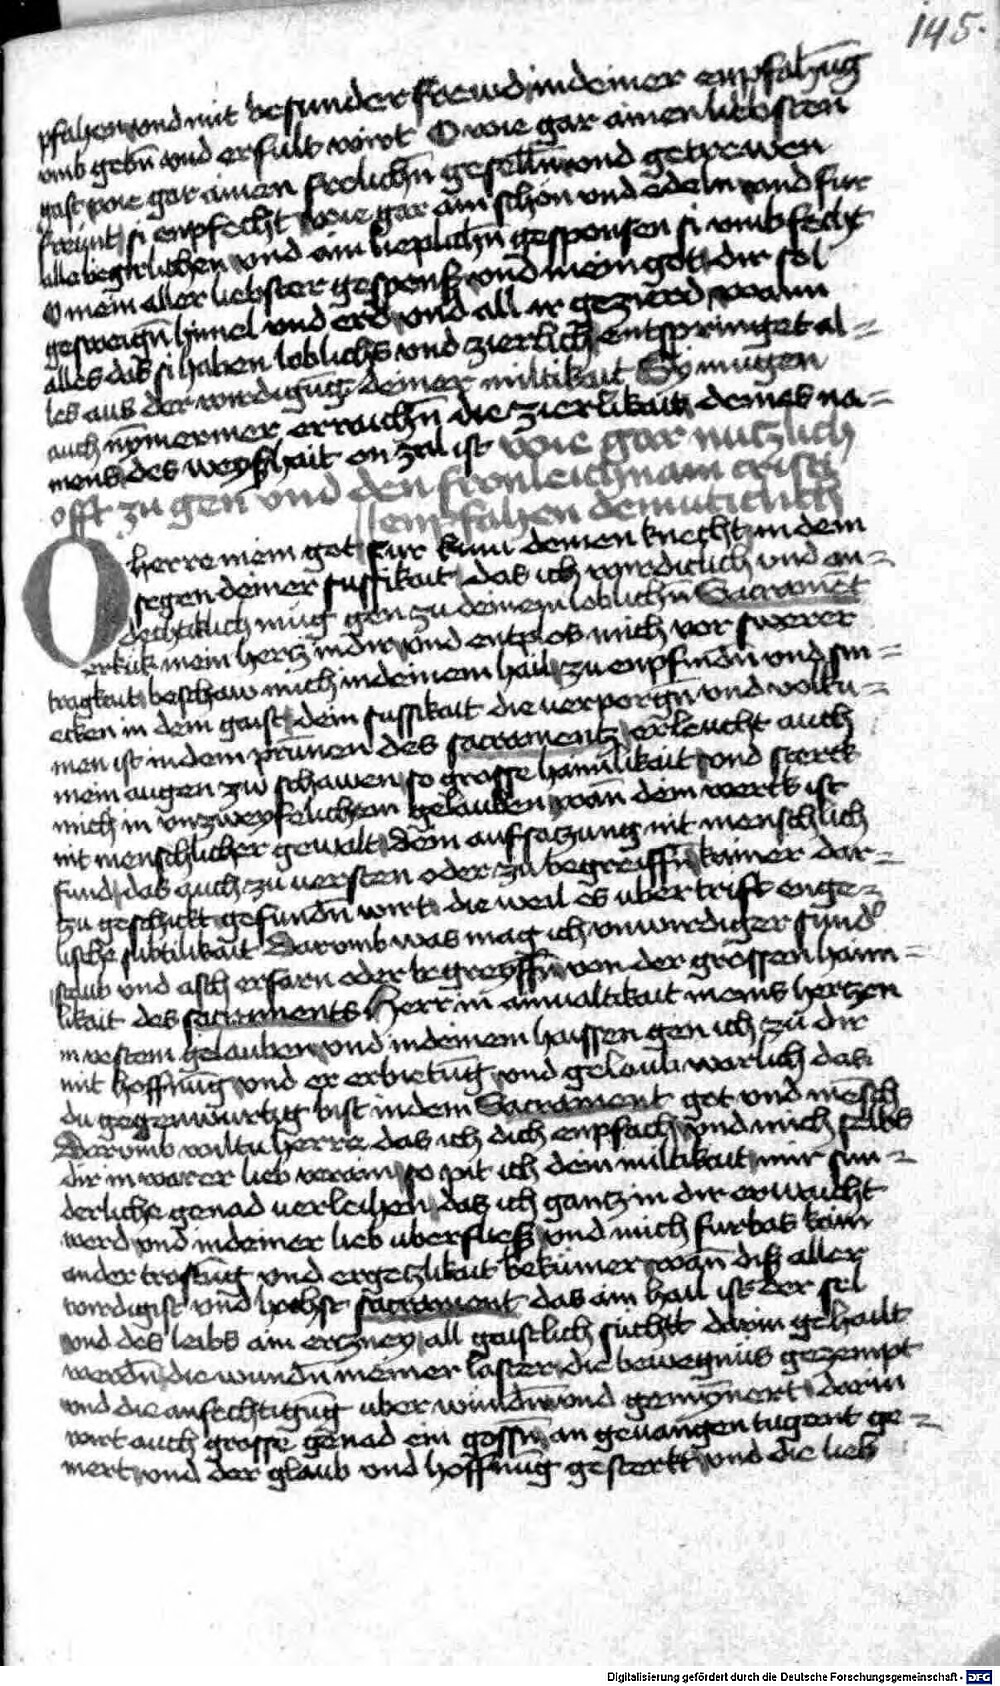 145.
pfahen vnd mit besunder frewd in deiner enpfahūg
vmb gebn̄ vnd erfult wirt O wie gar ainen liebsten
gast wie gar ainen frolichn̄ geselln̄ vnd getrewen
freünt si enpfecht wie gar ain schon vnd edeln vnd fur
alle begirlichen vnd ain lieplichn̄ gesponsen si vmbfecht
O mein aller liebster gespons vnd mein got dir sol
gesweign̄ himel vnd erd vnd all ir gezierd wann
alles das si haben loblichs vnd zierlich entspringet al=
les aus der wirdigūg deiner miltikait Sy mugen
auch nȳmermer erraichn̄ die zierlikait deines na=
mens des weyshait on zal ist wie gar nutzlich
offt zu gen vnd den fronleichnam cristi
empfahen demuticlich
O herre mein got fur kum deinen knecht in dem
segen deiner sussikait das ich wirdiclich vnd an=
dechtiklich mug gen zu deinem loblichn̄ Sacramēt
erkück mein hertz in dir vnd entplos mich vor swerer
tragkait beschaw mich in deinem hail zu enpfindn̄ vnd sm=
ecken in dem gaist dein sussikait die verporgn̄ vnd volku=
men ist in dem prunnen des sacraments erleucht auch
mein augen zw schawen so grosse haimlikait vnd sterck
mich in vnzweyfelichem gelauben wan̄ dein werck ist
nit menschlicher gewalt dein auffsatzung nit menschlich
fund das auch zu versten oder zu begreiffn̄ kainer dar=
tzu geschickt gefundn̄ wirt die weil es vbertrift enge=
lische subtilikait Darumb was mag ich vnwirdiger sund
staub vnd asch erfarn oder begreyffn̄ von der grossen haim=
likait des sacraments Herr in ainualtikait meins hertzen
in vestem gelauben vnd in deinem haissen gen ich zu dir
mit hoffnūg vnd er erbietūg vnd gelaub warlich das
du gegenwurtig bist in dem Sacrament got vnd mēsch
Darumb wiltu herre das ich dich enpfach vnd mich selbs
dir in warer lieb verain so pit ich dein miltikait mir sun=
derliche genad verleihen das ich gantz in dir erwaicht
werd vnd in deiner lieb vberfliess vnd mich furbas kain
ander trostūg vnd ergetzlikait bekumer wan̄ dis aller
wirdigist vnd hochst sacrament das ain hail ist der sel
vnd des leibs ain ertzney all gaistlich sücht darin gehailt
werdn̄ die wundn̄ meiner laster die bewegnus gezempt
vnd die anfechtigūg vberwundn̄ vnd gemynert darin
wirt auch grosse genad ein gossn̄ an geuangen tugent ge=
mert vnd der glaub vnd hoffnug gesterkt vnd die lieb
Digitalisierung gefördert durch die Deutsche Forschungsgemeinschaft - DFG